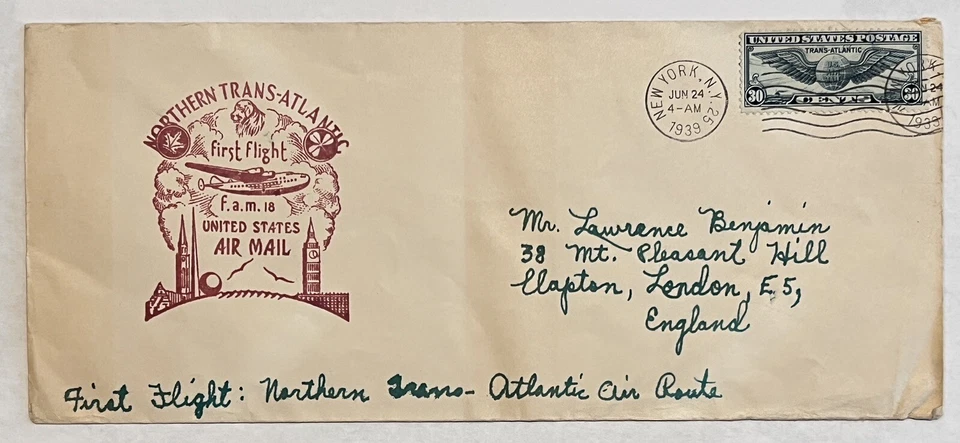 NORTHERN TRANS-ATLANTIC
first flight
f.a.m. 18
UNITED STATES
AIR MAIL
NEW YORK, N.Y. 25
JUN 24
4-AM
1939
UNITED STATES POSTAGE
TRANS-ATLANTIC
30 CENTS 30
YORK,
N 24
AM
1939
Mr. Lawrence Benjamin
38 Mt. Pleasant Hill
Clapton, London, E5,
England
First Flight: Northern Trans-Atlantic Air Route